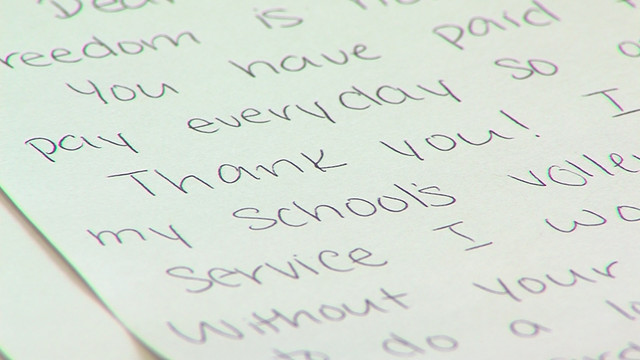 Dear
reedom is
You have paid
pay everyday so
Thank you! I
my school's volle
service I wo
without your
to do a